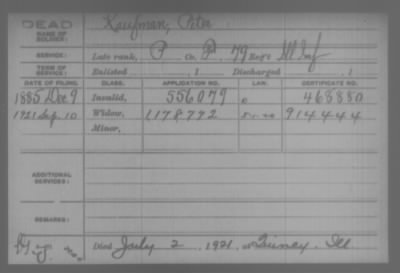 DEAD
NAME OF SOLDIER: Kaufman, Peter
SERVICE: Late rank, P Co. 79 Reg't Ill Inf
TERM OF SERVICE: Enlisted , 1 Discharged , 1
DATE OF FILING. CLASS. APPLICATION NO. LAW. CERTIFICATE NO.
1885 Dec 9 Invalid, 556079 468880
1921 Sep. 10 Widow, 1178772 914444
Minor,
ADDITIONAL SERVICES:
REMARKS:
Died July 2, 1921, at Quincy, Ill.